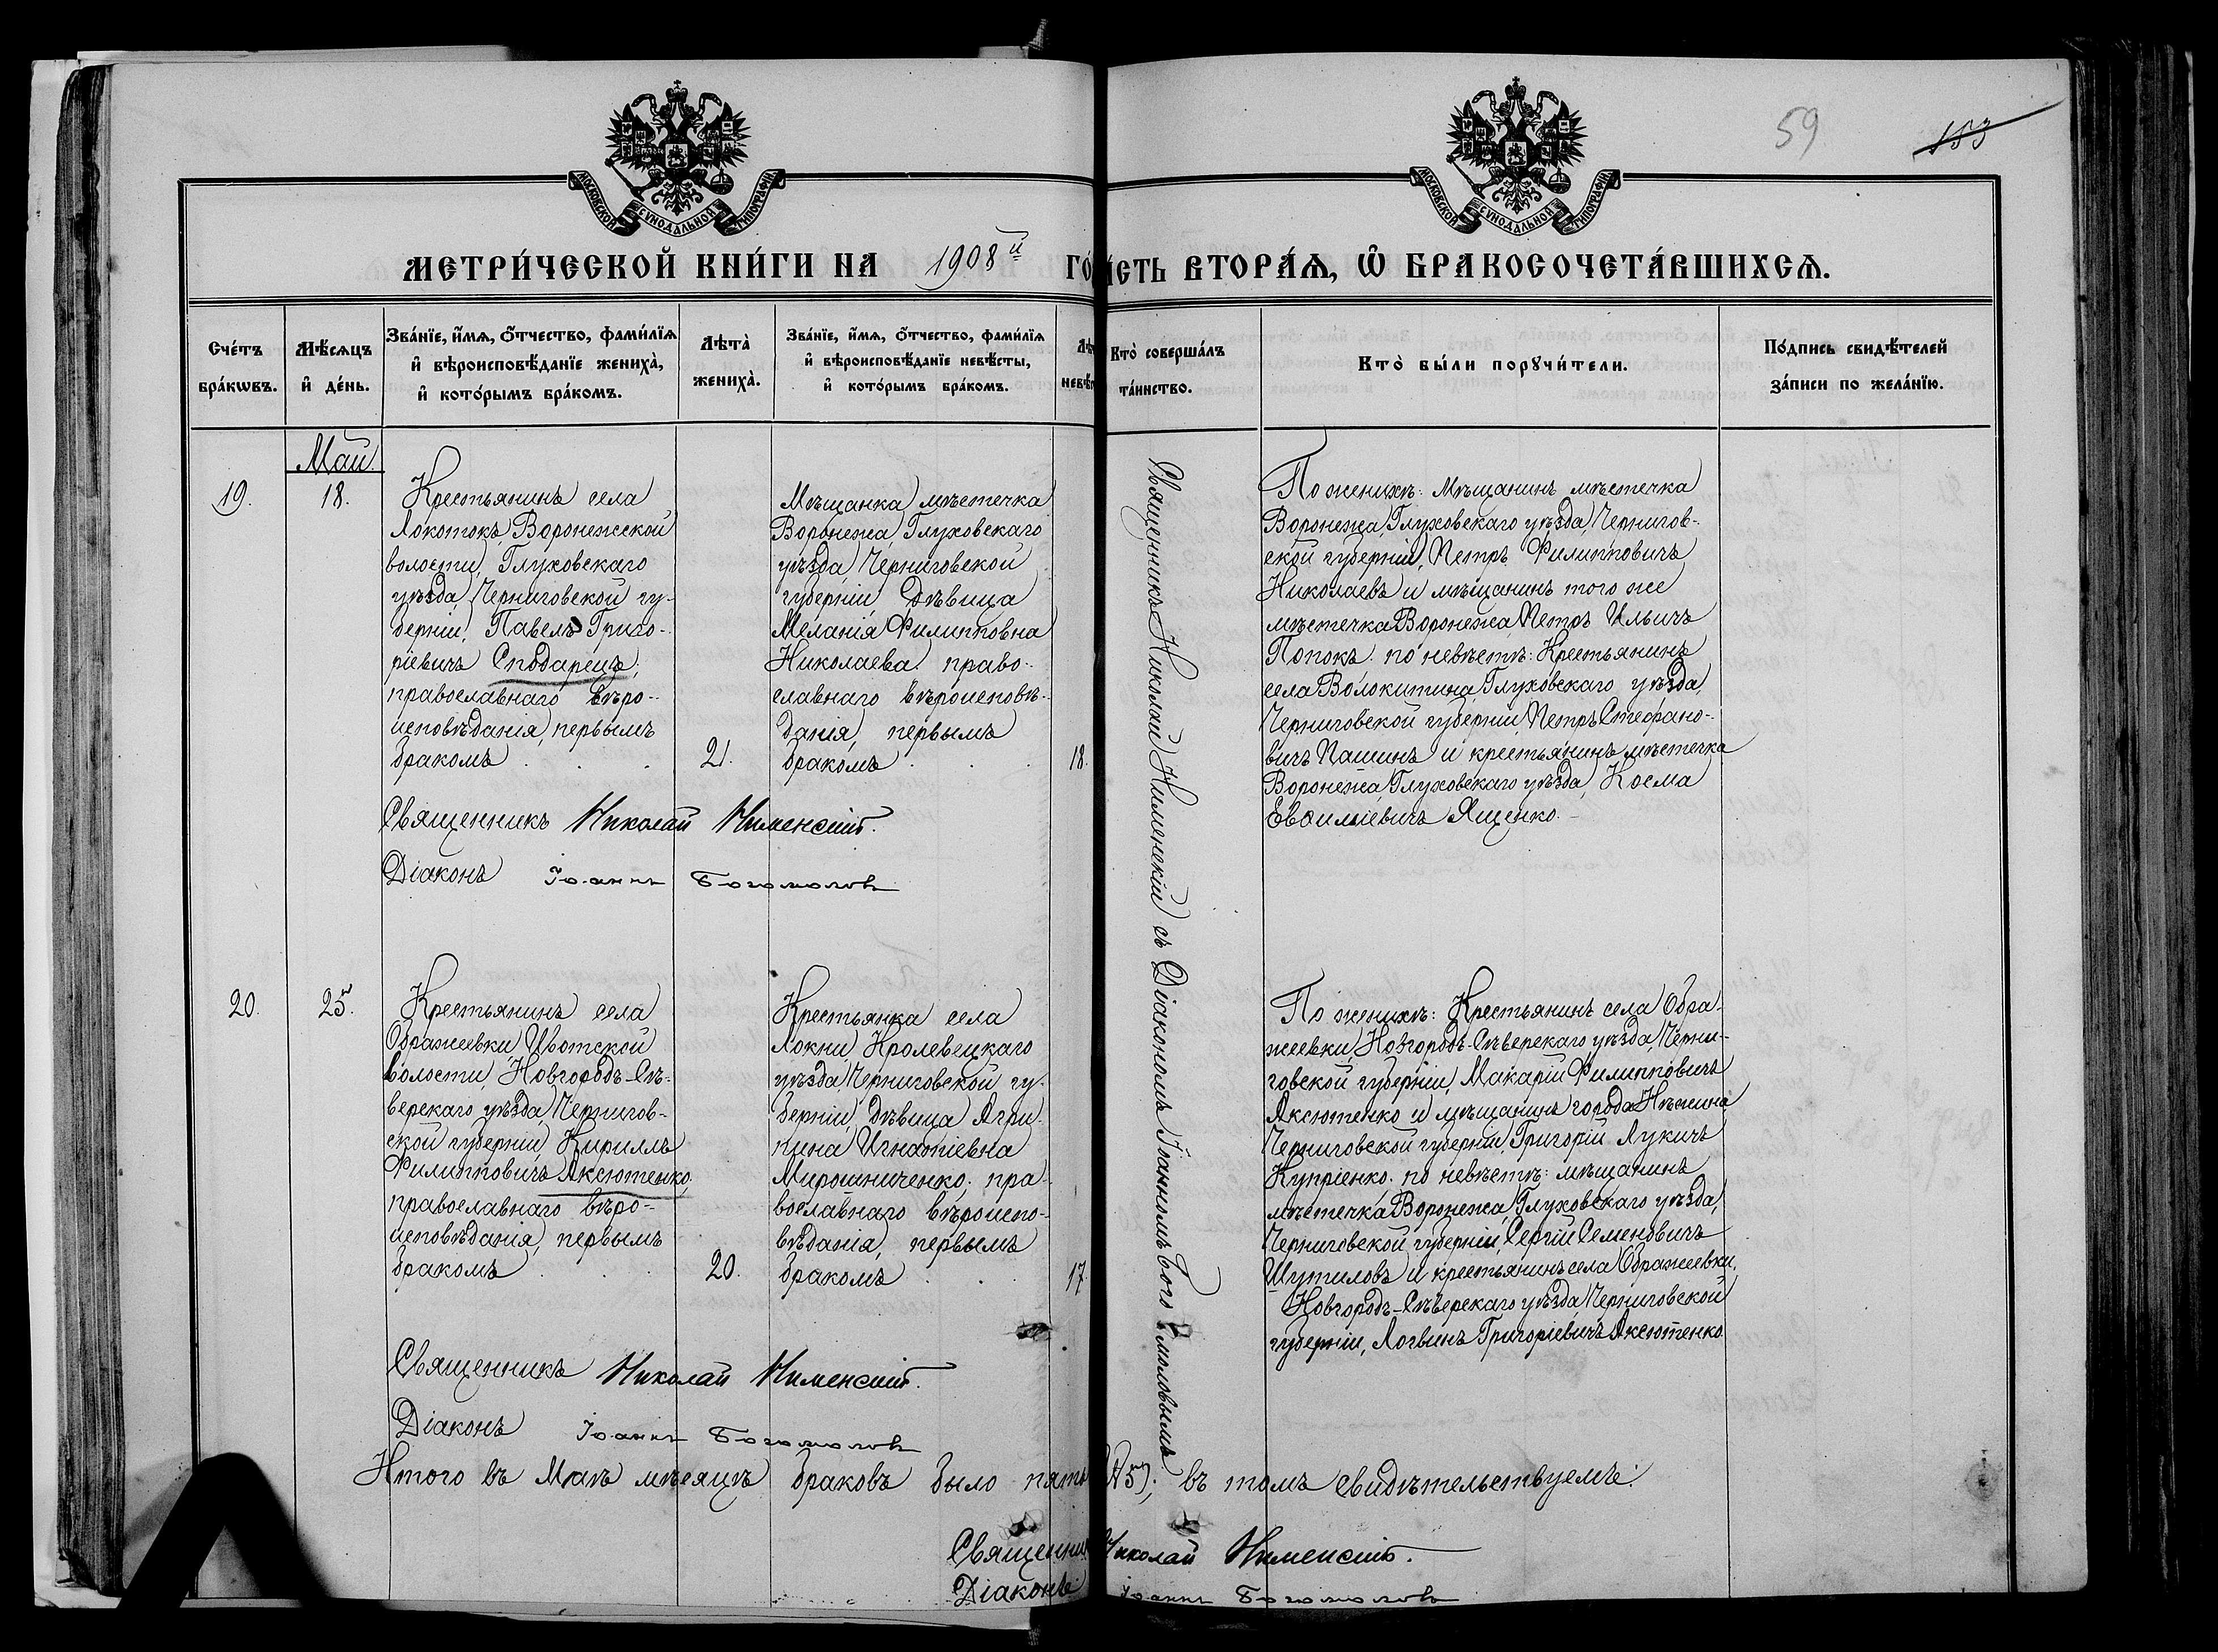 59
153
МОСКОВСКОЙ СѴНОДАЛЬНОЙ ТИПОГРАФІИ
МОСКОВСКОЙ СѴНОДАЛЬНОЙ ТИПОГРАФІИ
МЕТРИ́ЧЕСКОЙ КНИ́ГИ НА 1908й ГО́
ІСТЬ ВТОРА́Ѧ, Ѡ҆ БРАКОСОЧЕТА́ВШИХСѦ.
Сче́тъ
бра́кѡвъ.
Мѣ́сѧцъ
и҆ де́нь.
Зва́нїе, и҆́мѧ, ѻ҆́тчество, фами́лїѧ
и҆ вѣроисповѣ́данїе жениха̀,
и҆ кото́рымъ бра́комъ.
Лѣта̀
жениха̀.
Зва́нїе, и҆́мѧ, ѻ҆́тчество, фами́лїѧ
и҆ вѣроисповѣ́данїе невѣ́сты,
и҆ кото́рымъ бра́комъ.
Лѣт
невѣ́
Кто̀ соверша́лъ
та́инство.
Кто̀ бы́ли порꙋчи́тели.
По́дпись свидѣ́телей
за́писи по жела́нїю.
Май.
19.
18.
Крестьянинъ села
Локотокъ, Воронежской
волости, Глуховскаго
уѣзда, Черниговской гу-
берніи, Павелъ Григо-
ріевичъ Сподарецъ,
православнаго вѣро-
исповѣданія, первымъ
бракомъ . . .
21.
Мѣщанка мѣстечка
Воронежа, Глуховскаго
уѣзда, Черниговской
губерніи, дѣвица
Меланія Филипповна
Николаева, право-
славнаго вѣроисповѣ-
данія, первымъ
бракомъ . . .
18.
Священникъ Николай Нименскій.
Діаконъ Іоаннъ Богомоловъ
Священникъ Николай Нименскій съ Діакономъ Іоанномъ Богомоловымъ
По женихѣ: Мѣщанинъ мѣстечка
Воронежа, Глуховскаго уѣзда, Чернигов-
ской губерніи, Петръ Филипповичъ
Николаевъ и мѣщанинъ того же
мѣстечка Воронежа, Петръ Ильичъ
Попокъ. по невѣстѣ: Крестьянинъ
села Волокитина, Глуховскаго уѣзда,
Черниговской губерніи, Петръ Стефано-
вичъ Пашинъ и крестьянинъ мѣстечка
Воронежа, Глуховскаго уѣзда, Косма
Ященко.
20.
25й.
Крестьянинъ села
Ображеевки, Ивотской
волости, Новгородъ-Сѣ-
верскаго уѣзда, Чернигов-
ской губерніи, Кириллъ
Филипповичъ Аксютенко,
православнаго вѣро-
исповѣданія, первымъ
бракомъ . . .
20.
Крестьянка села
Локни, Кролевецкаго
уѣзда, Черниговской гу-
берніи, дѣвица Агри-
пина Игнатіевна
Мирошниченко, пра-
вославнаго вѣроиспо-
вѣданія, первымъ
бракомъ . . .
17.
По женихѣ: Крестьянинъ села Обра-
жеевки, Новгородъ-Сѣверскаго уѣзда, Черни-
говской губерніи, Макарій Филипповичъ
Аксютенко и мѣщанинъ города Нѣжина
Черниговской губерніи, Григорій Лукичъ
Купріенко. по невѣстѣ: мѣщанинъ
мѣстечка Воронежа, Глуховскаго уѣзда,
Черниговской губерніи, Сергій Семеновичъ
Шутиловъ и крестьянинъ села Ображеевки,
Новгородъ-Сѣверскаго уѣзда, Черниговской
губерніи, Логвинъ Григоріевичъ Аксютенко
Священникъ Николай Нименскій.
Діаконъ Іоаннъ Богомоловъ
Итого въ Маѣ мѣсяцѣ браковъ было пять (5); въ томъ свидѣтельствуемъ:
Священни Николай Нименскій.
Діаконъ Іоаннъ Богомоловъ